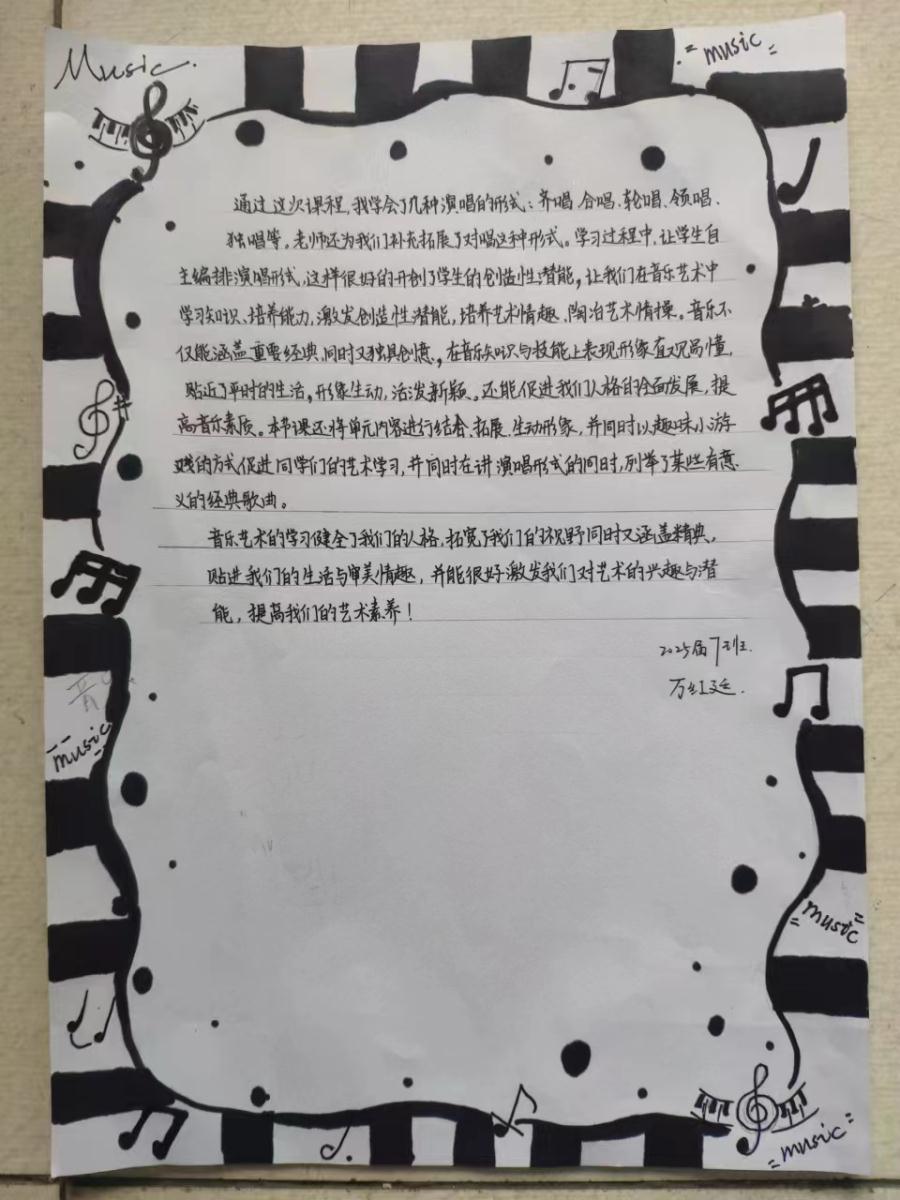 Music.
= music =
通过这次课程,我学会了几种演唱的形式:齐唱、合唱、轮唱、领唱、
独唱等。老师还为我们补充拓展了对唱这种形式。学习过程中,让学生自
主编排演唱形式,这样很好的开创了学生的创造性潜能,让我们在音乐艺术中
学习知识、培养能力、激发创造性潜能,培养艺术情趣、陶冶艺术情操。音乐不
仅能涵盖重要经典,同时又独具创意,在音乐知识与技能上表现形象直观易懂,
贴近了平时的生活,形象生动,活泼新颖。还能促进我们人格的全面发展,提
高音乐素质。本节课还将单元内容进行结合、拓展、生动形象,并同时以趣味小游
戏的方式促进同学们的艺术学习,并同时在讲演唱形式的同时,列举了某些有意
义的经典歌曲。
音乐艺术的学习健全了我们的人格,拓宽了我们的视野同时又涵盖精典,
贴进我们的生活与审美情趣,并能很好激发我们对艺术的兴趣与潜
能,提高我们的艺术素养!
2025届7班.
万红廷.
music
= music =
= music =